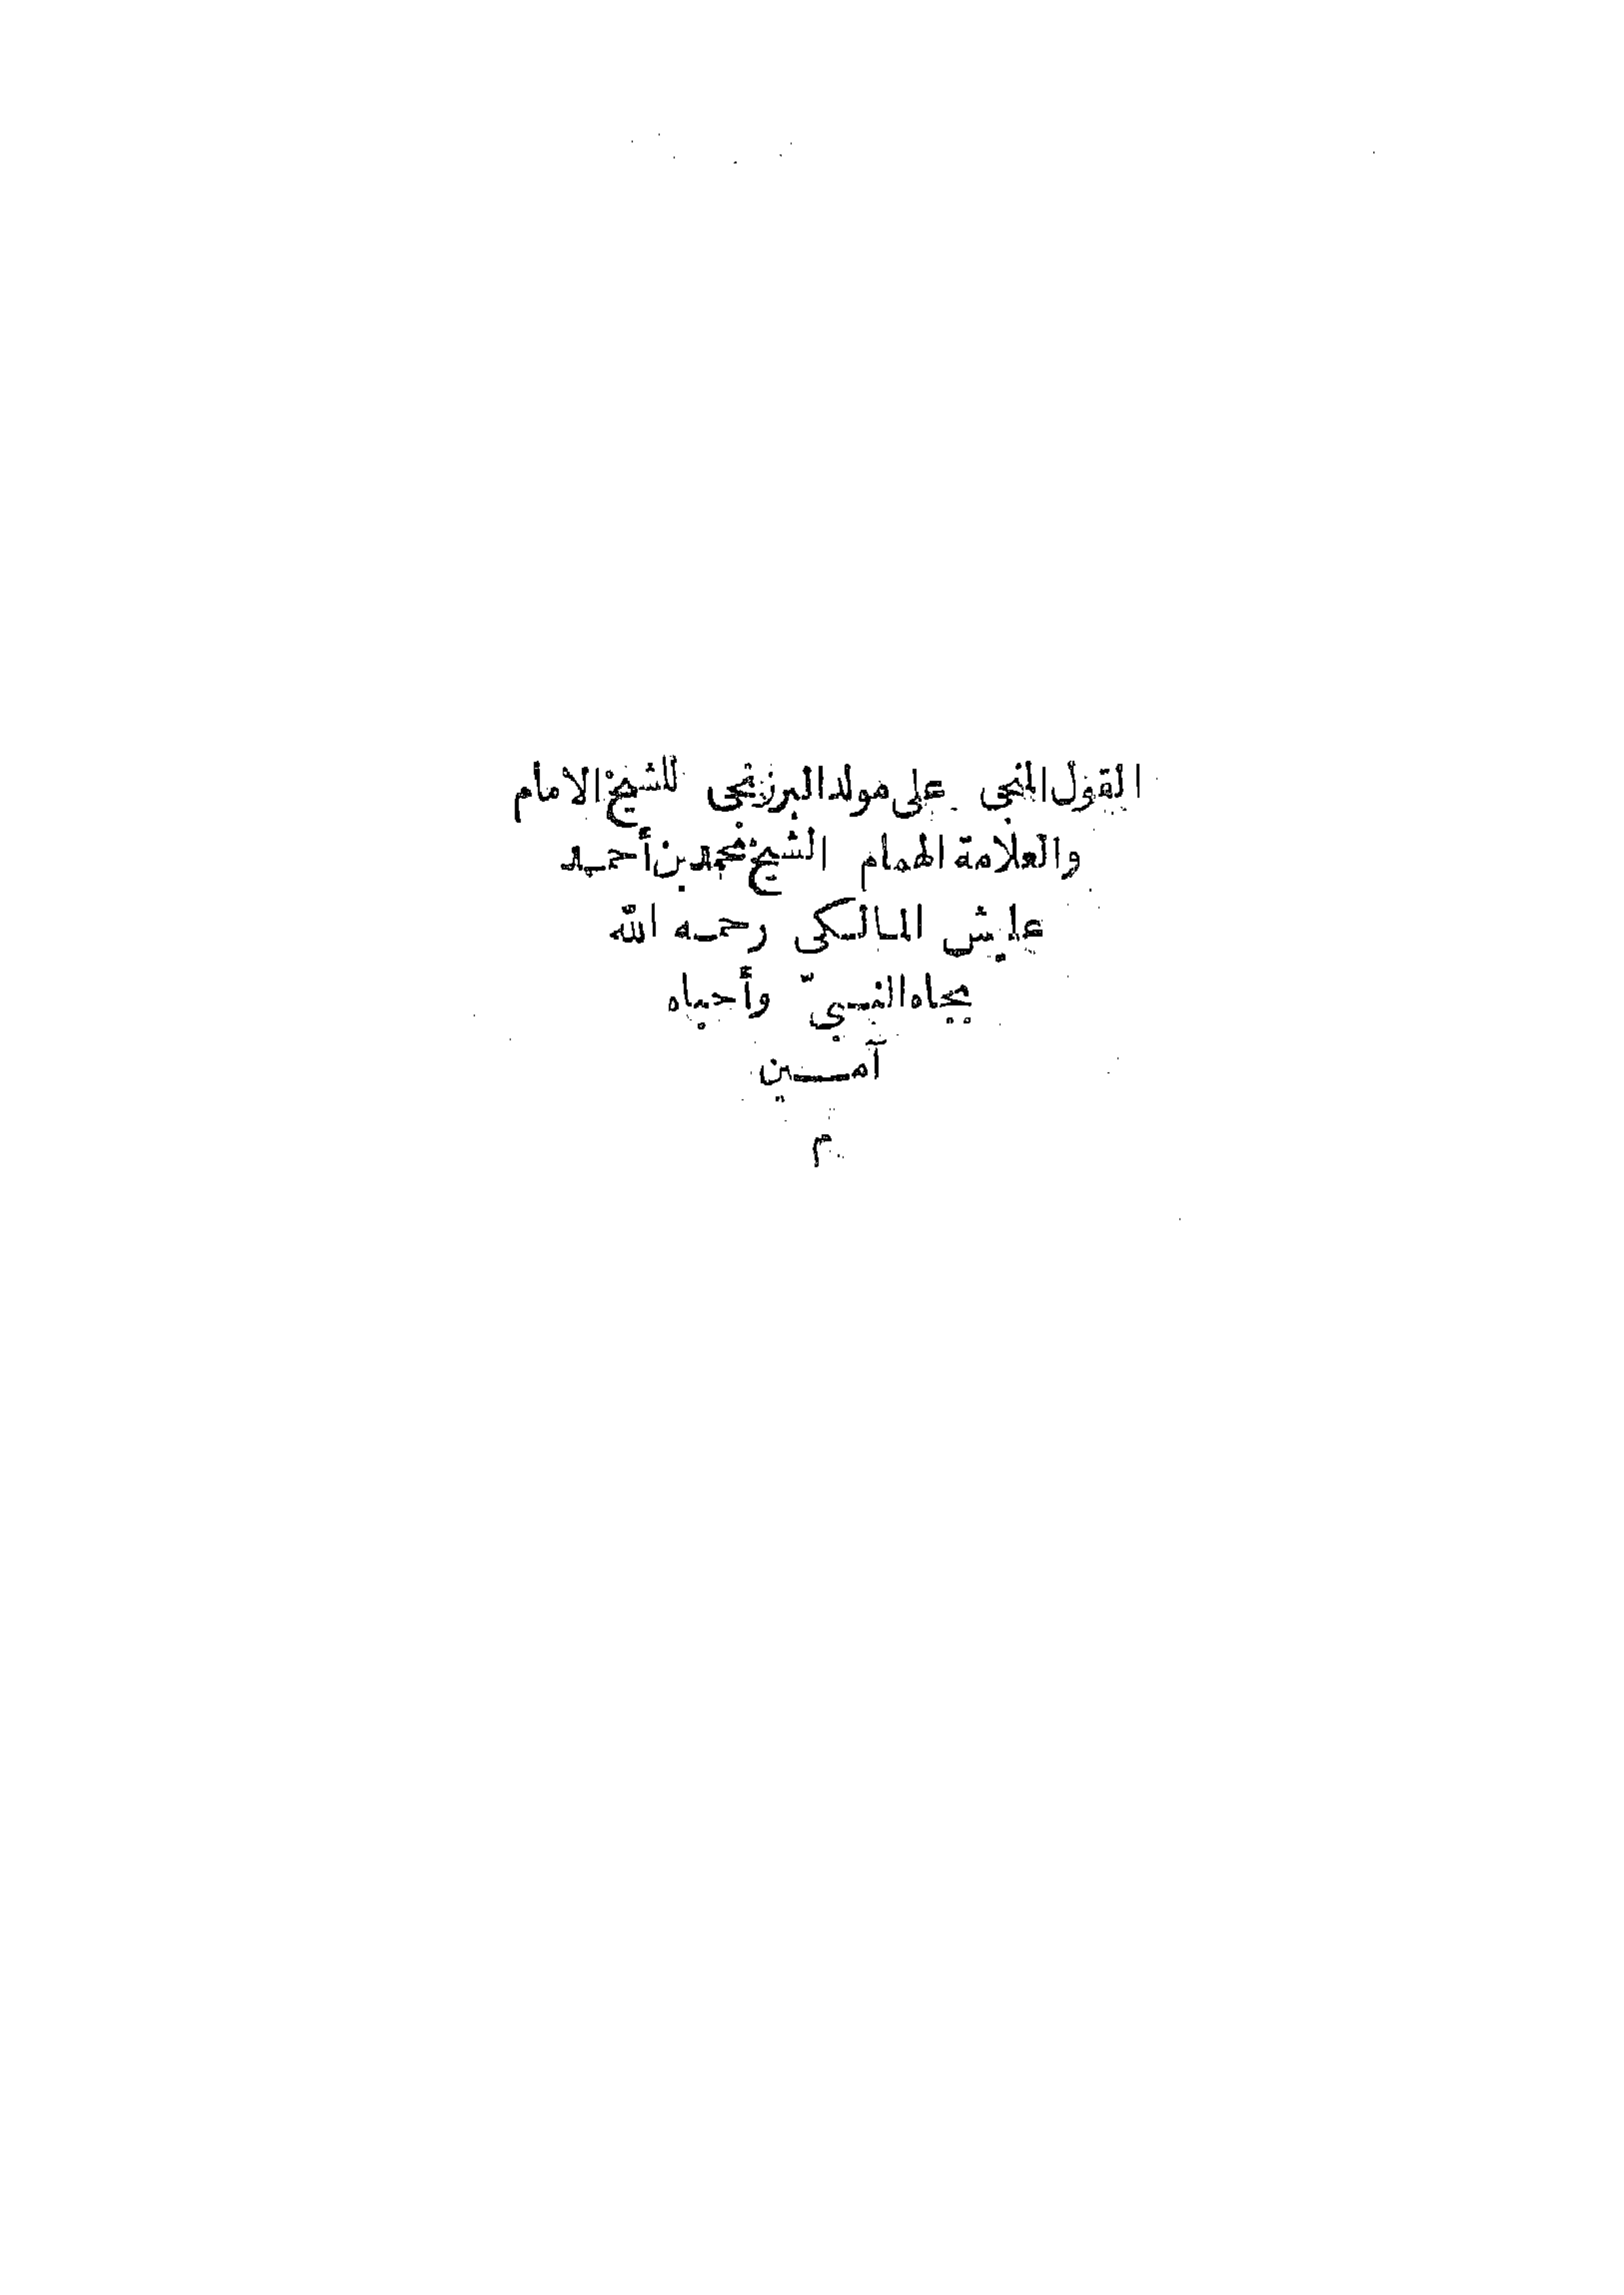 القول المنجى على مولد البرزنجى للشيخ الامام
والعلامة الهمام الشيخ محمد بن أحمد
عليش المالكى رحمه الله
بجاه النبىّ وأحباه
آمين
م